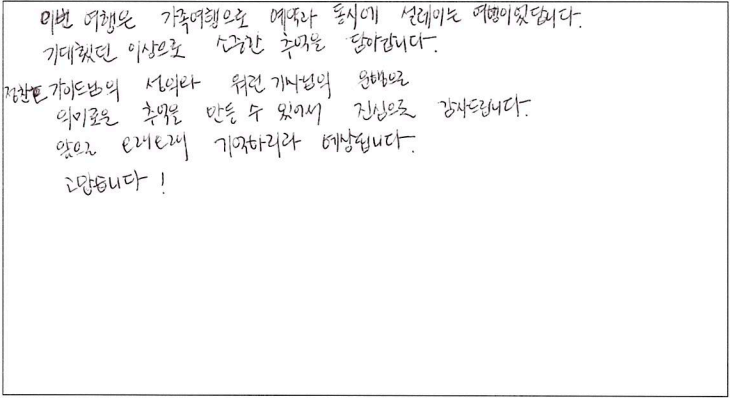 이번 여행은 가족여행으로 예약과 동시에 설레이는 여행이었답니다.
기대했던 이상으로 소중한 추억을 담아갑니다.
정찬범 가이드님의 성의와 워런 기사님의 운행으로
의미로운 추억을 만들 수 있어서 진심으로 감사드립니다.
앞으로 오래오래 기억하리라 예상됩니다.
고맙습니다!